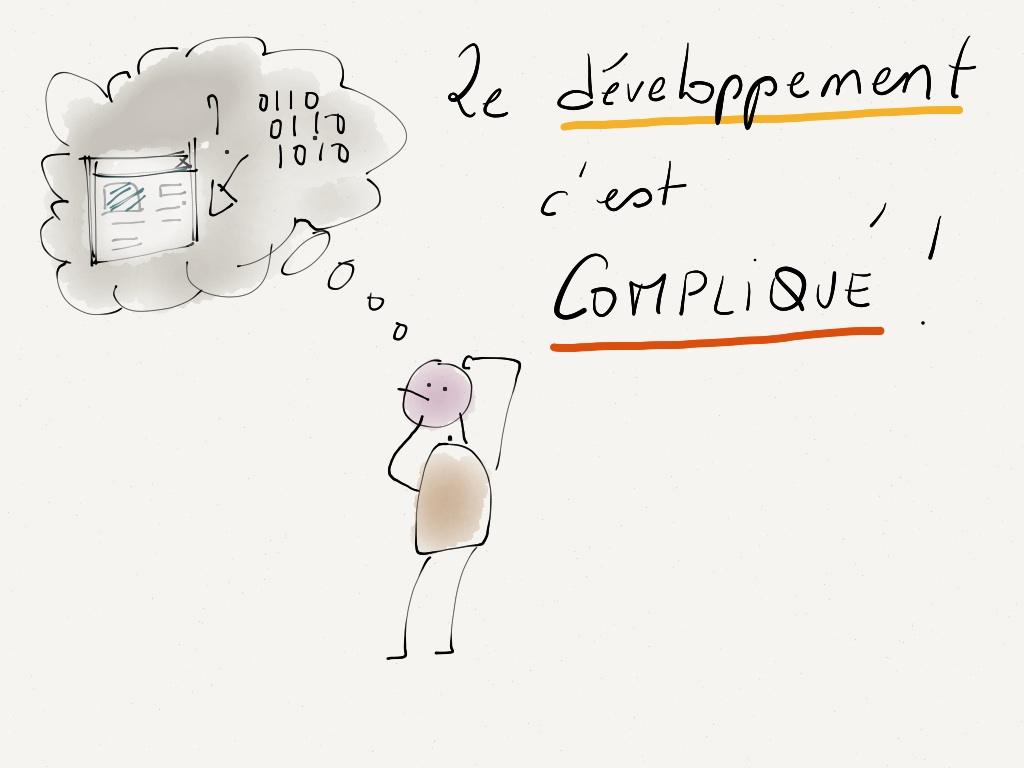 Le développement
c'est
COMPLiQUÉ !
?
0110
011?0
1010